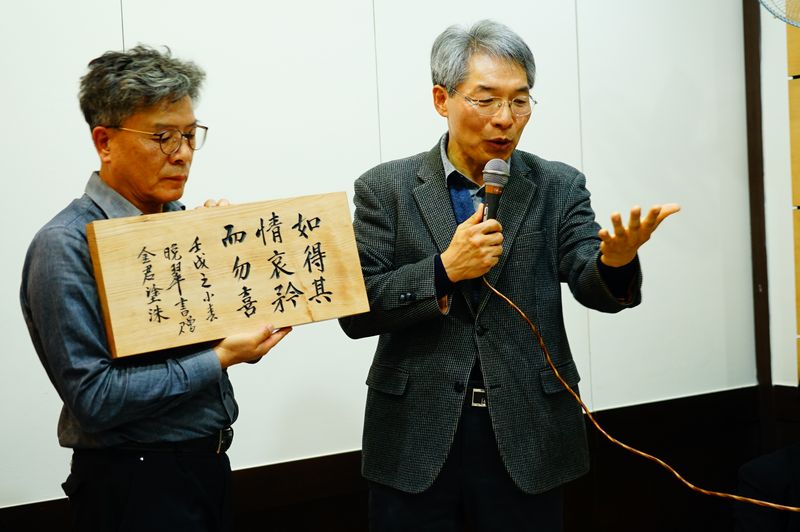 如得其
情哀矜
而勿喜
壬戌之小春
晩翠書贈
金君洙